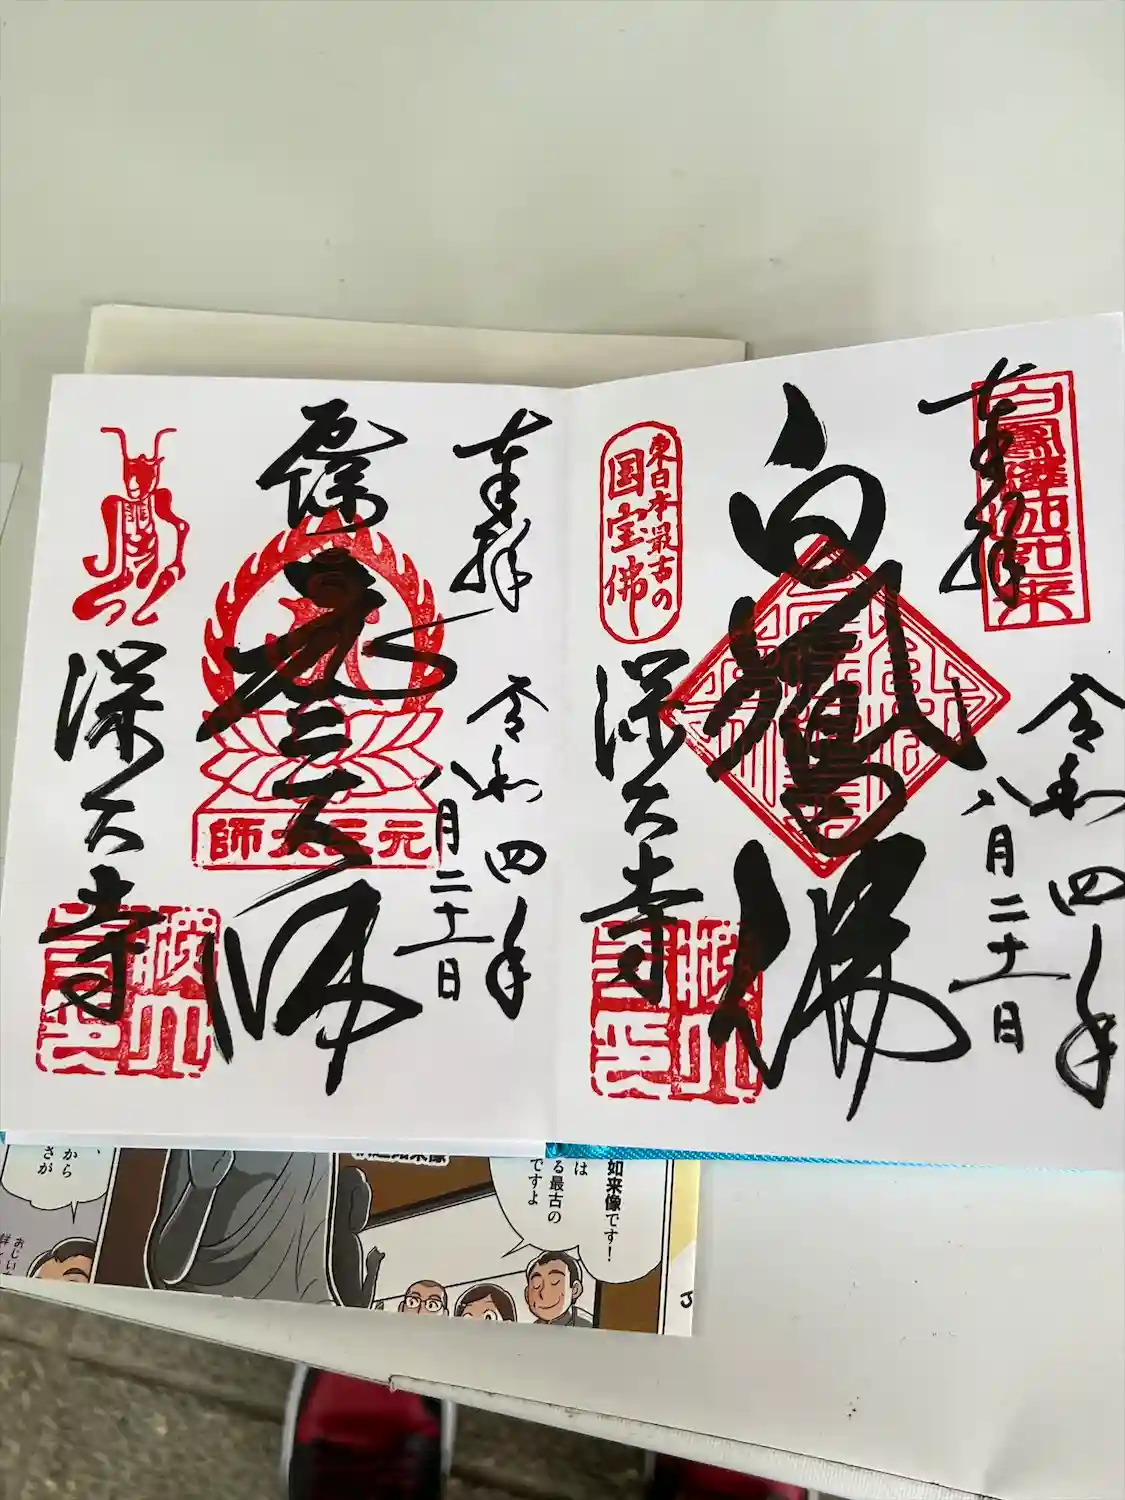 奉拝
白鳳釋迦如来
令和四年
八月二十一日
白鳳佛
東日本最古の
国宝佛
深大寺
奉拝
令和四年
八月二十一日
元三大師
元三大師
深大寺
如来像です!
は
る最古の
ですよ
から
さが
おじい